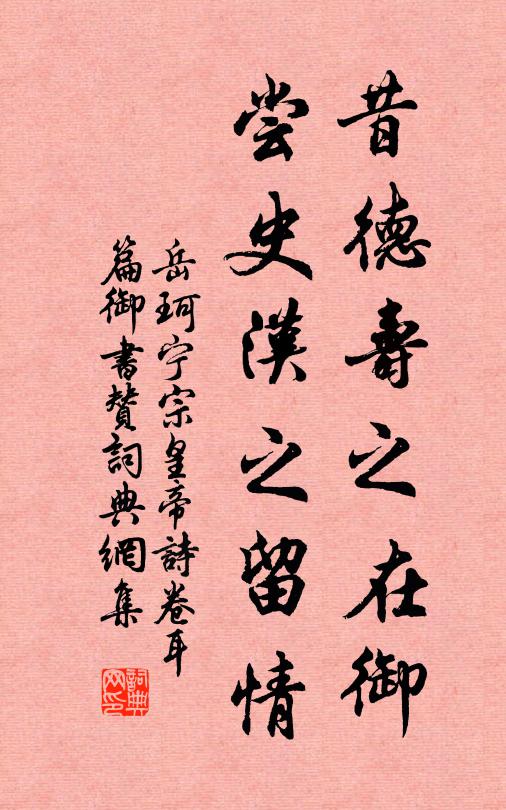 昔德壽之在御
尝史漢之留情
岳珂宁宗皇帝詩卷耳
篇御書贊詞典網集
詞典
网印